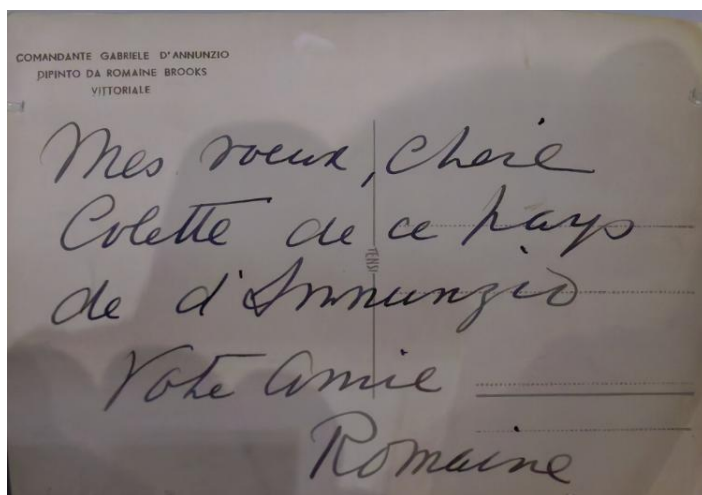 COMANDANTE GABRIELE D'ANNUNZIO
DIPINTO DA ROMAINE BROOKS
VITTORIALE
Mes voeux, Chère
Colette de ce pays
de d'Annunzio
Votre amie
Romaine
TENSI